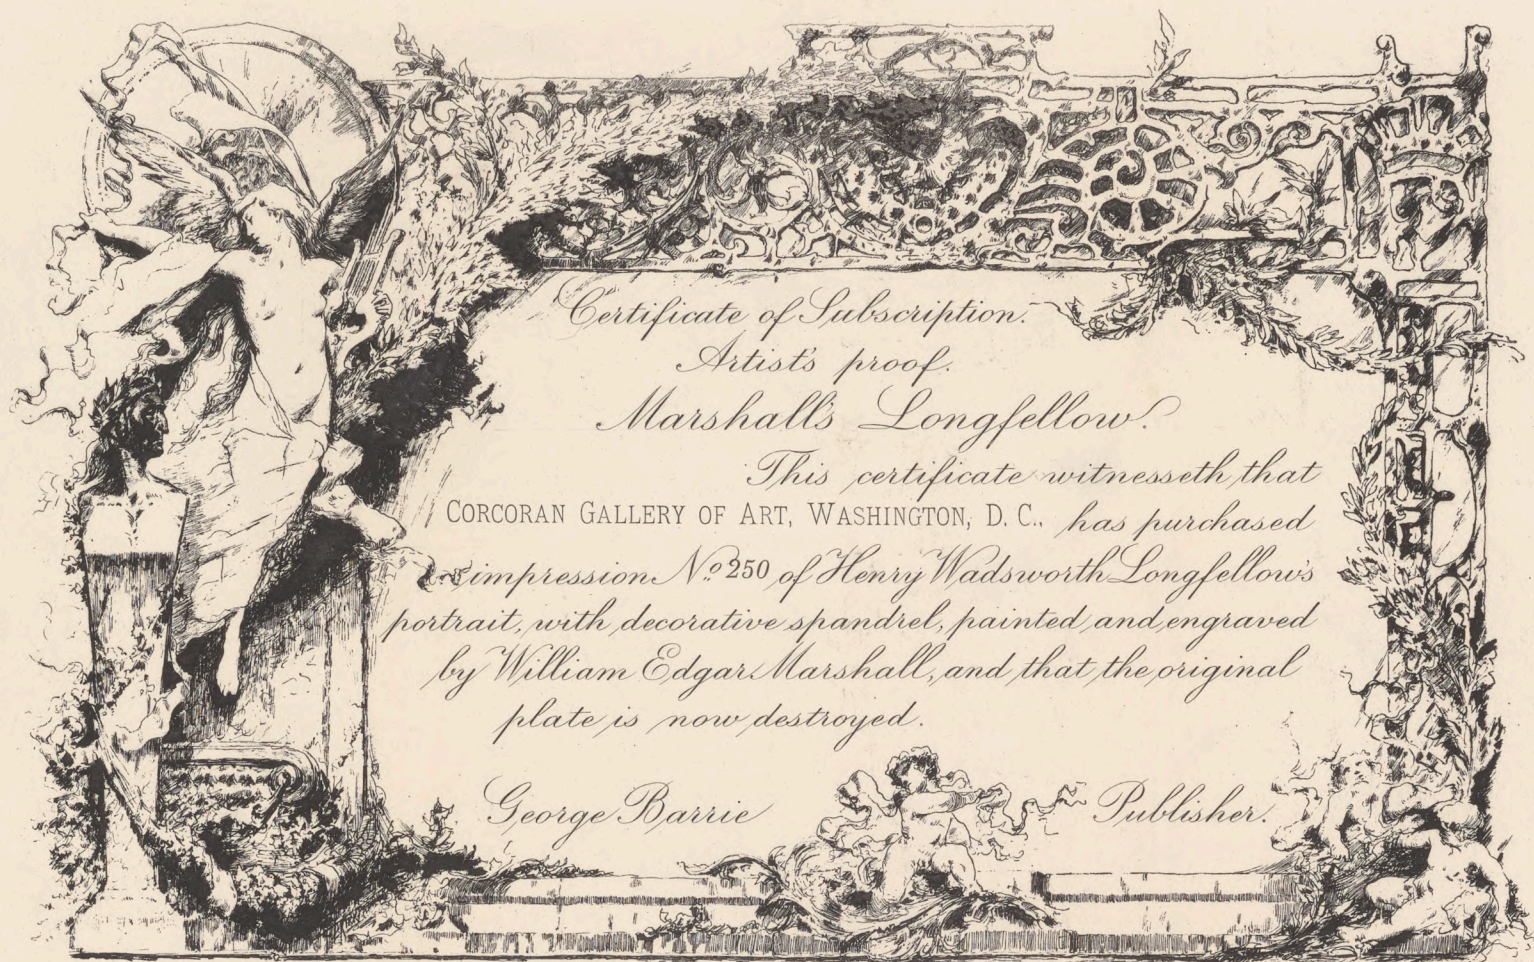 Certificate of Subscription.
Artist's proof.
Marshall's Longfellow.
This certificate witnesseth that
CORCORAN GALLERY OF ART, WASHINGTON, D. C., has purchased
impression No. 250 of Henry Wadsworth Longfellow's
portrait, with decorative spandrel, painted and engraved
by William Edgar Marshall, and that the original
plate is now destroyed.
George Barrie Publisher.